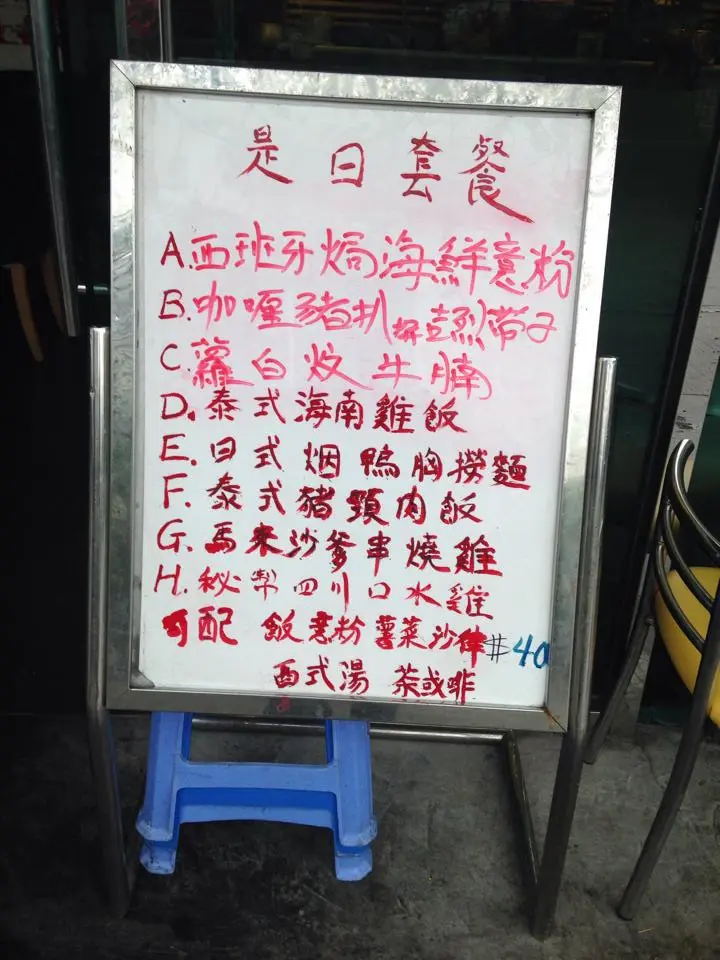 是日套餐
A.西班牙焗海鮮意粉
B.咖喱豬扒拼吉列帶子
C.蘿白炆牛腩
D.泰式海南雞飯
E.日式烟鴨胸撈麵
F.泰式豬頸肉飯
G.馬来沙爹串燒雞
H.秘製四川口水雞
可配 飯意粉薯菜沙律 #40
西式湯 茶或啡